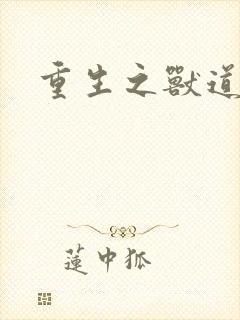 重生之獸道
蓮中狐